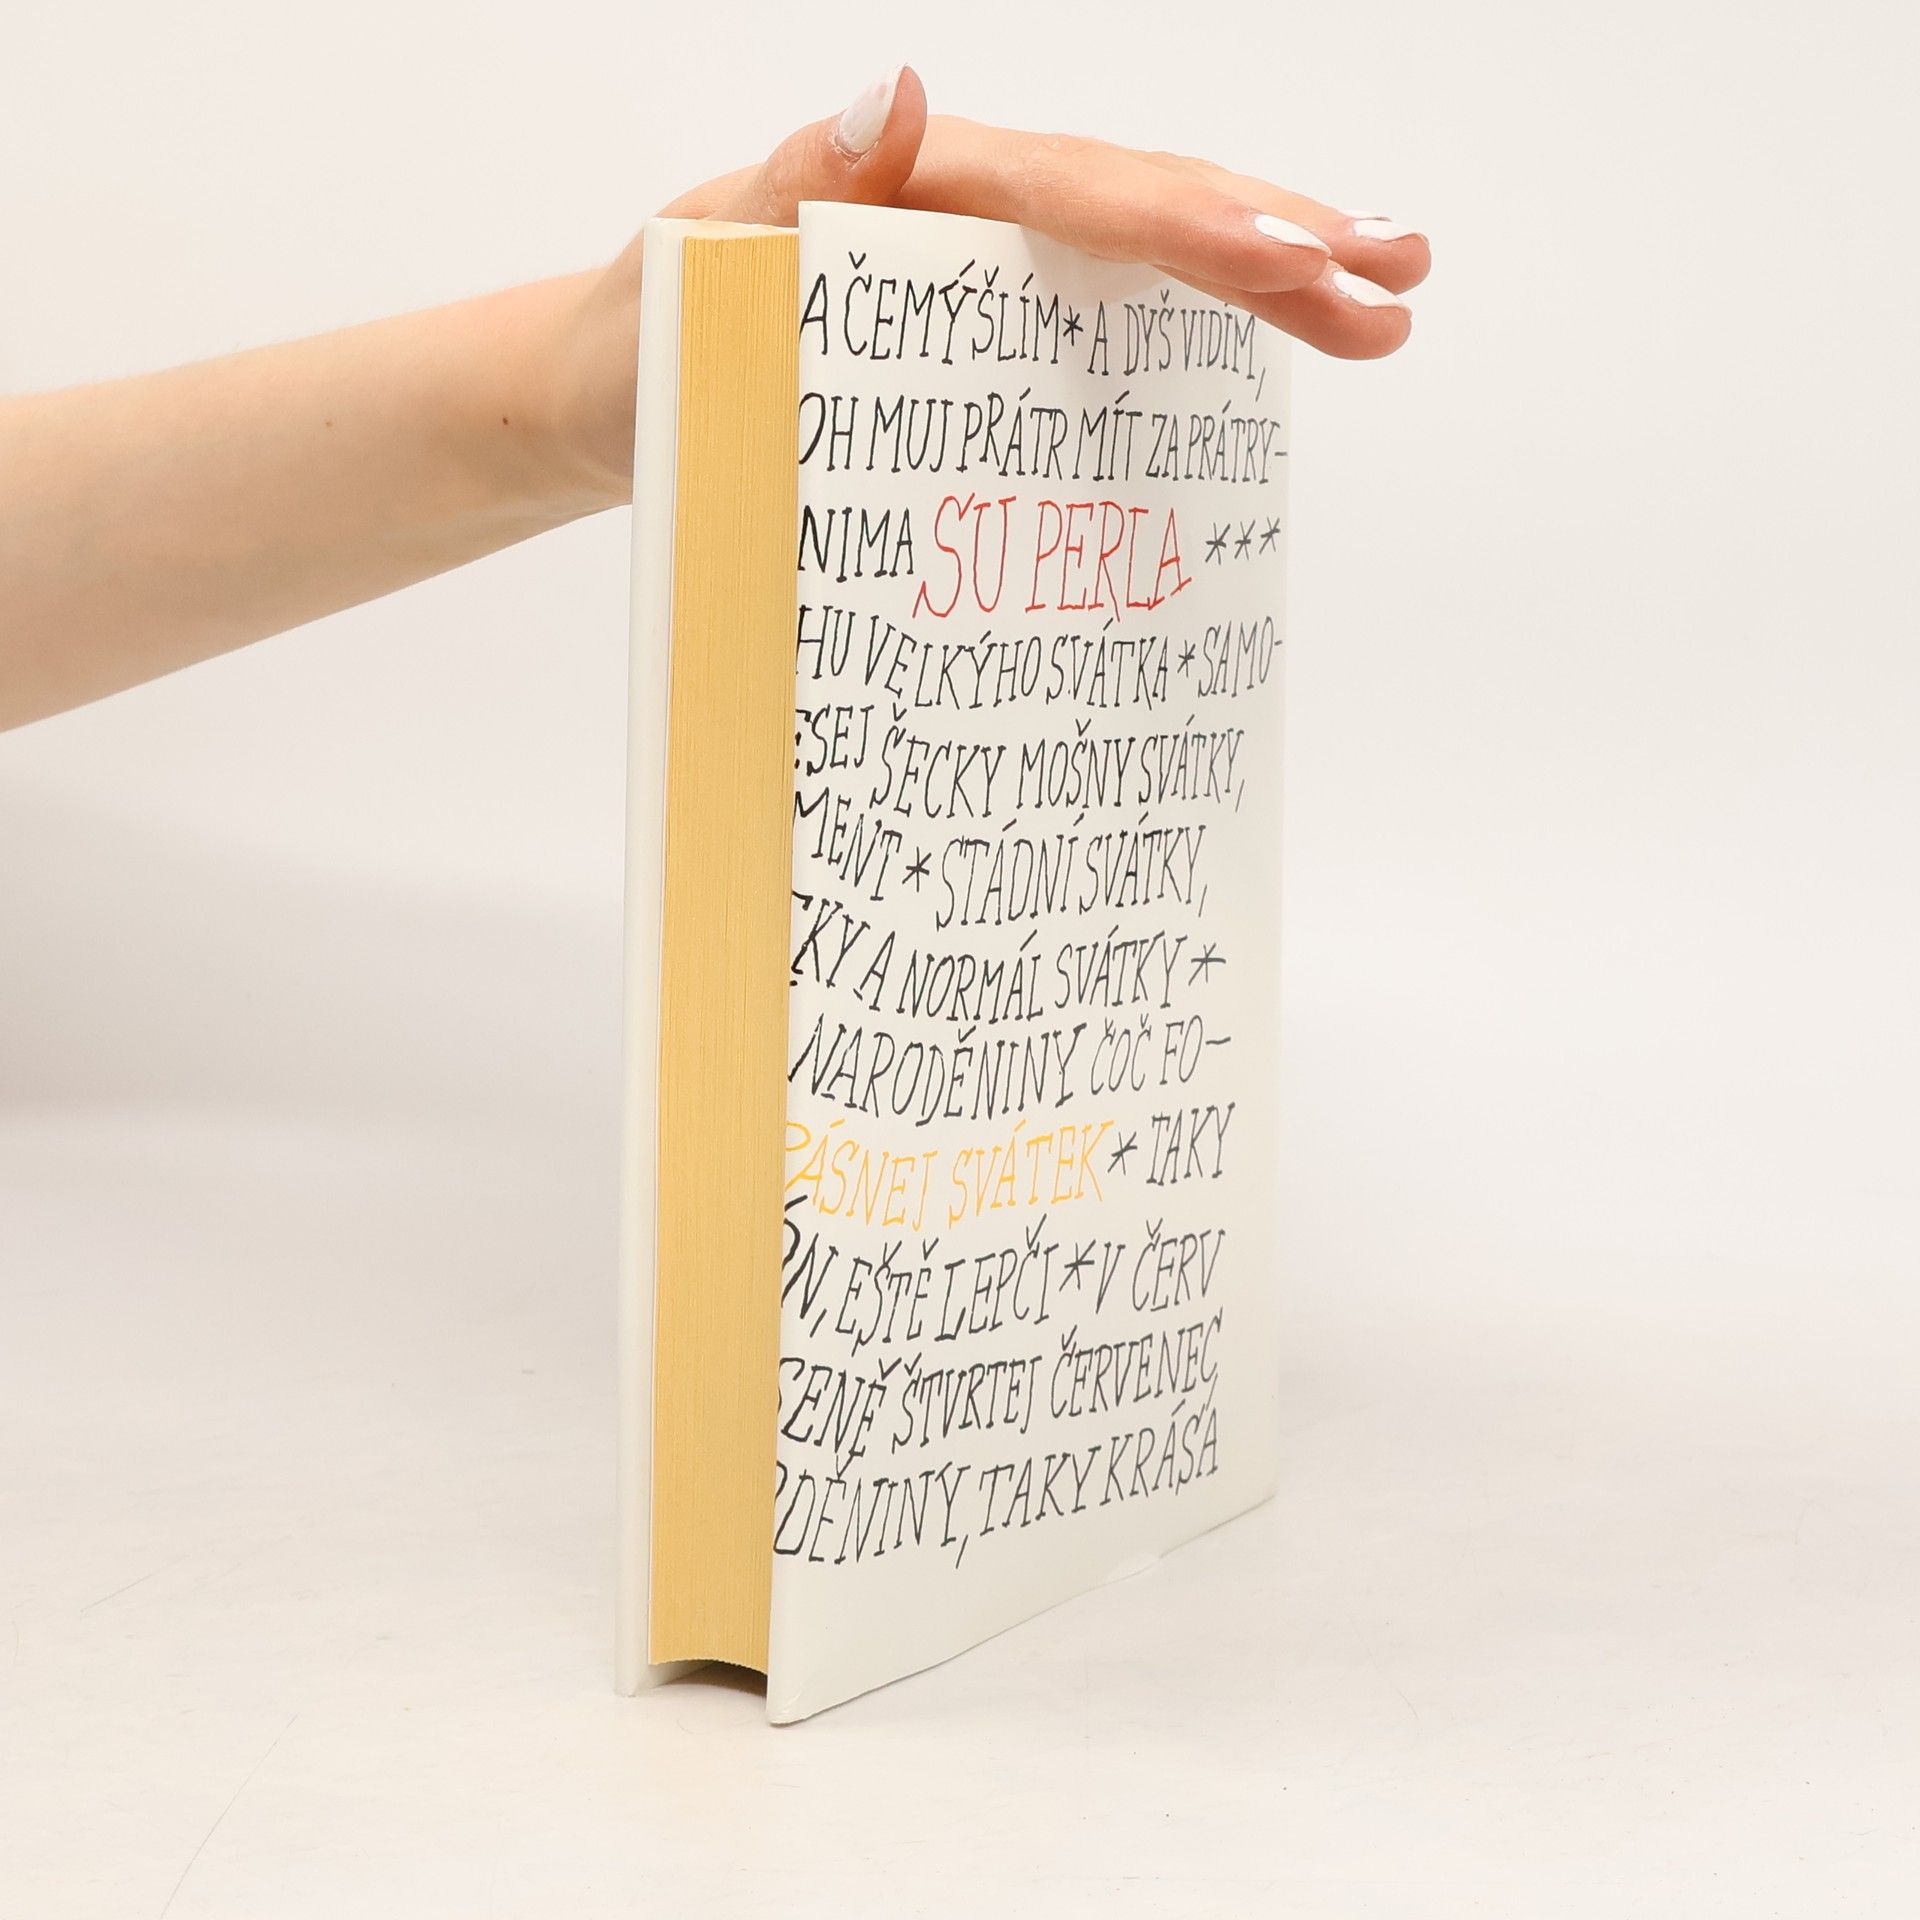 A ČEMÝŠLÍM * A DYŠ VIDÍM,
OH MUJ PRÁTR MÍT ZA PRÁTRY-
NIMA SU PERLA ***
HU VELKÝHO SVÁTKA * SAMO-
ESEJ ŠECKY MOŠNY SVÁTKY,
MENT * STÁDNÍ SVÁTKY,
TKY A NORMÁL SVÁTKY *
NARODĚNINY ČOČ FO-
RÁSNEJ SVÁTEK * TAKY
ÓN, EŠTĚ LEPČI * V ČERV
SENĚ ŠTVRTEJ ČERVENEC,
ODĚNINY, TAKY KRÁSA